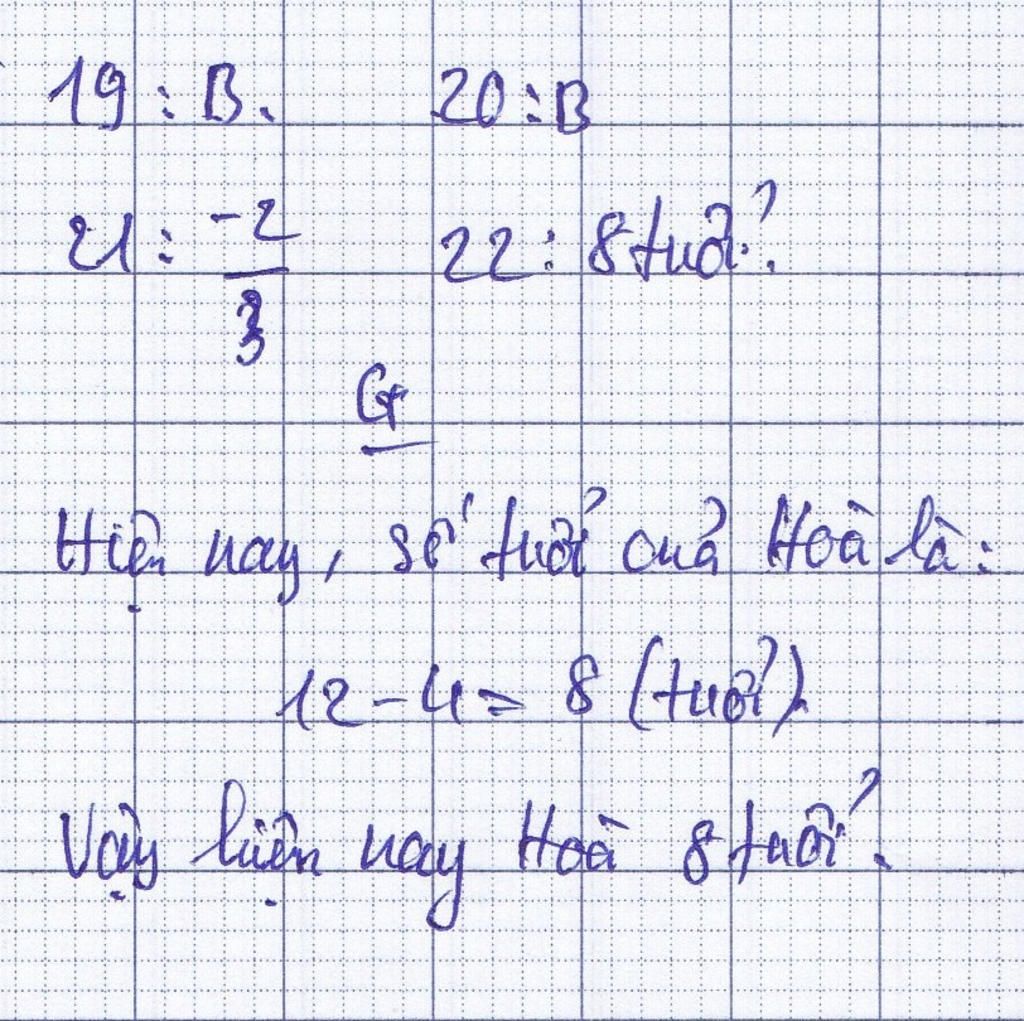 19 : B. 20 : B
21 : -2/3 22 : 8 tuổi.
G
Hiện nay, số tuổi của Hoà là:
12 - 4 = 8 (tuổi).
Vậy hiện nay Hoà 8 tuổi.